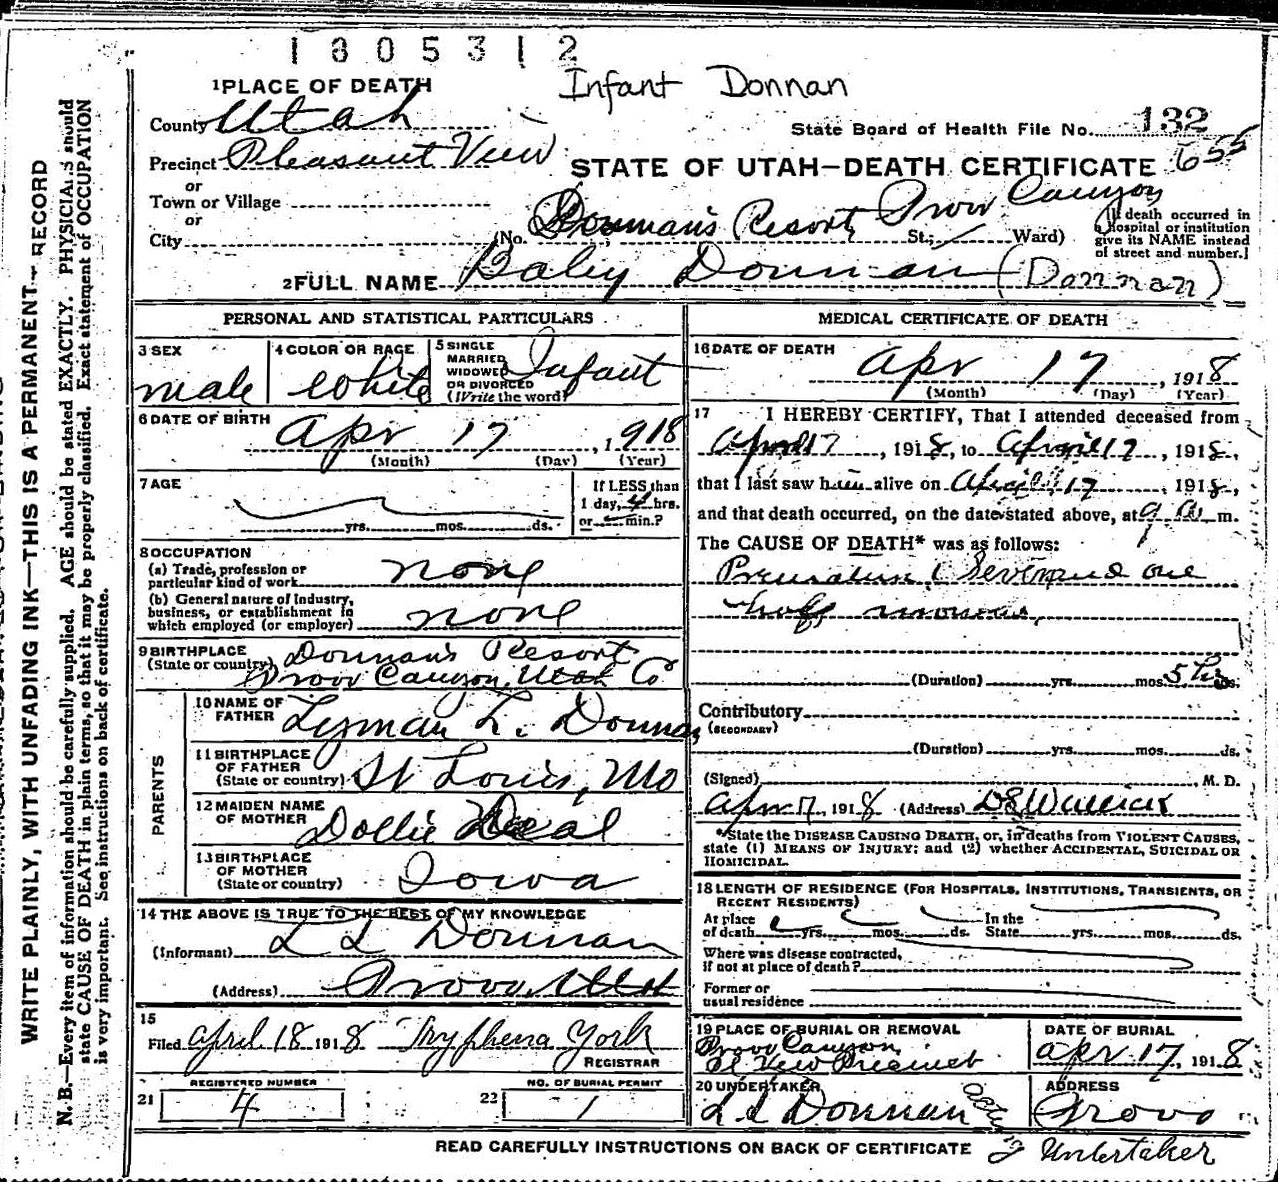 1805312
Infant Donnan
1 PLACE OF DEATH
County Utah
State Board of Health File No. 132
Precinct Pleasant View
655
STATE OF UTAH—DEATH CERTIFICATE
or
Town or Village
or
City
(No. Donnan's Resort, Provo Canyon St.; Ward)
[If death occurred in
a Hospital or institution
give its NAME instead
of street and number.]
2 FULL NAME Baby Donnan (Donnan)
PERSONAL AND STATISTICAL PARTICULARS
3 SEX
male
4 COLOR OR RACE
White
5 SINGLE
MARRIED
WIDOWED
OR DIVORCED
(Write the word)
Infant
6 DATE OF BIRTH
Apr 17, 1918
(Month) (Day) (Year)
7 AGE
yrs. mos. ds.
If LESS than
1 day, 4 hrs.
or min.?
8 OCCUPATION
(a) Trade, profession or
particular kind of work none
(b) General nature of Industry,
business, or establishment in
which employed (or employer) none
9 BIRTHPLACE
(State or country) Donnan's Resort
Provo Canyon, Utah Co
PARENTS
10 NAME OF
FATHER Lyman L. Donnan
11 BIRTHPLACE
OF FATHER
(State or country) St Louis, Mo
12 MAIDEN NAME
OF MOTHER Dollie Deal
13 BIRTHPLACE
OF MOTHER
(State or country) Iowa
14 THE ABOVE IS TRUE TO THE BEST OF MY KNOWLEDGE
(Informant) L L Donnan
(Address) Provo, Utah
15
Filed April 18 1918 Tryphena York
REGISTRAR
21 REGISTERED NUMBER
4
22 NO. OF BURIAL PERMIT
1
MEDICAL CERTIFICATE OF DEATH
16 DATE OF DEATH
Apr 17, 1918
(Month) (Day) (Year)
17 I HEREBY CERTIFY, That I attended deceased from
April 17, 1918, to April 17, 1918,
that I last saw him alive on April 17, 1918,
and that death occurred, on the date stated above, at 9 a m.
The CAUSE OF DEATH* was as follows:
Premature Seven and one
half months,
(Duration) yrs. mos. 5 hrs ds.
Contributory
(SECONDARY)
(Duration) yrs. mos. ds.
(Signed) , M. D.
Apr 17, 1918 (Address)
*State the DISEASE CAUSING DEATH, or, in deaths from VIOLENT CAUSES,
state (1) MEANS OF INJURY; and (2) whether ACCIDENTAL, SUICIDAL OR
HOMICIDAL.
18 LENGTH OF RESIDENCE (FOR HOSPITALS, INSTITUTIONS, TRANSIENTS, OR
RECENT RESIDENTS)
At place
of death yrs. mos. ds.
In the
State yrs. mos. ds.
Where was disease contracted,
if not at place of death?
Former or
usual residence
19 PLACE OF BURIAL OR REMOVAL
Provo Canyon,
Pl View Precinct
DATE OF BURIAL
Apr 17, 1918
20 UNDERTAKER
L L Donnan
ADDRESS
Provo
acting Undertaker
READ CAREFULLY INSTRUCTIONS ON BACK OF CERTIFICATE
WRITE PLAINLY, WITH UNFADING INK—THIS IS A PERMANENT RECORD
N. B.—Every item of information should be carefully supplied. AGE should be stated EXACTLY. PHYSICIANS should
state CAUSE OF DEATH in plain terms, so that it may be properly classified. Exact statement of OCCUPATION
is very important. See instructions on back of certificate.